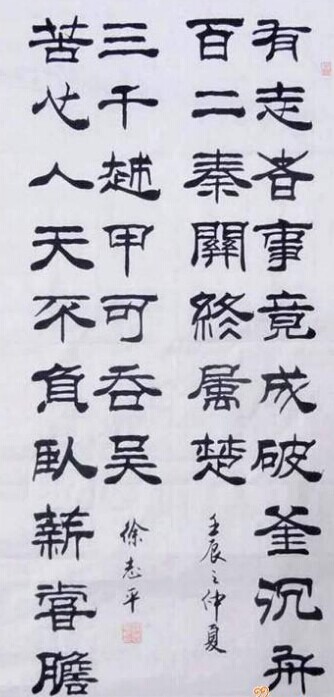 有志者事竟成破釜沉舟
百二秦關終属楚
壬辰之仲夏
苦心人天不負臥薪嘗膽
三千越甲可吞吴
徐志平